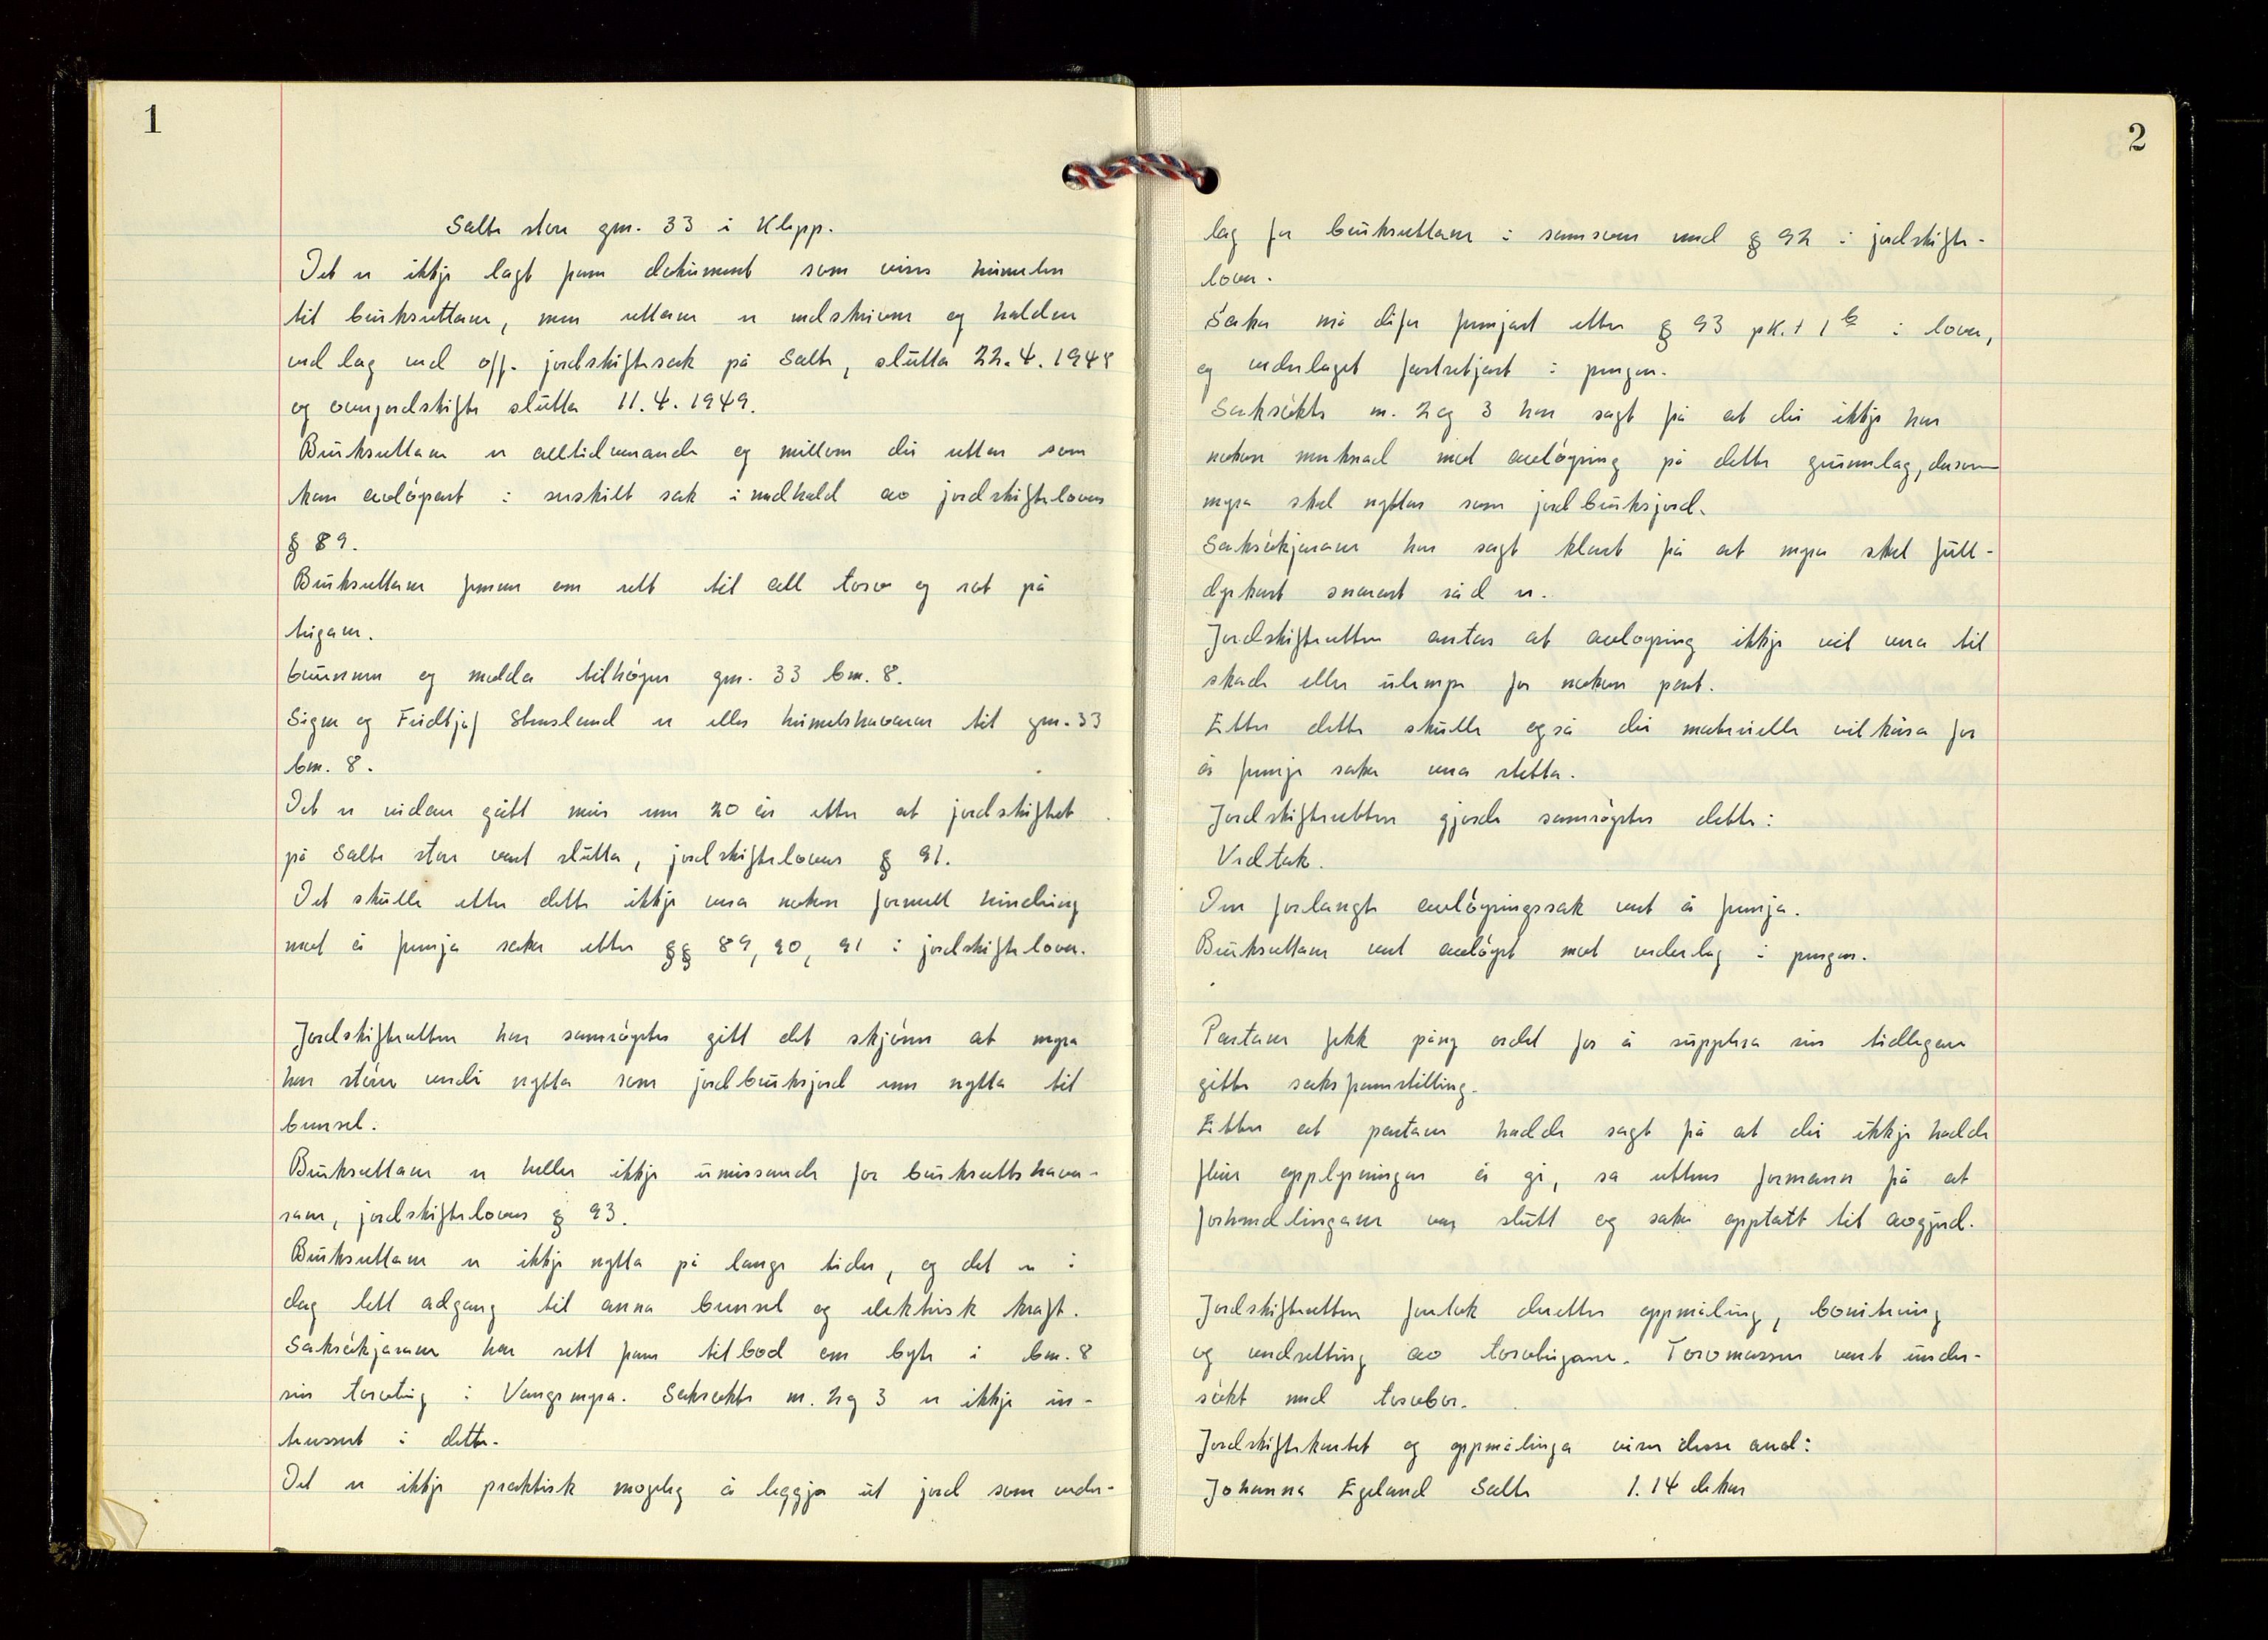 1
Salte store gnr. 33 i Klepp.
Det er ikkje lagt fram dokument som viser heimelen
til bruksrettane, men rettane er nedskrivne og haldne
ved lag ved off. jordskiftesak på Salte, slutta 22.4.1948
og omjordskifte slutta 11.4.1949.
Bruksrettane er alltidvarande og millom dei rettar som
kan avløysast i serskilt sak i medhald av jordskiftelovas
§ 89.
Bruksrettane femner om rett til all torv og rot på
teigane.
Grunnen og molda tilhøyrer gnr. 33 bnr. 8.
Signe og Fridtjof Stensland er eller heimelshavarar til gnr. 33
bnr. 8.
Det er vidare gått meir enn 20 år etter at jordskiftet
på Salte store vart slutta, jordskiftelovas § 91.
Det skulle etter dette ikkje vera nokon formell hindring
mot å fremja saka etter §§ 89, 90, 91 i jordskiftelova.
Jordskifteretten har samrøystes gitt det skjønn at myra
har større verdi nytta som jordbruksjord enn nytta til
brensel.
Bruksrettane er heller ikkje umissande for bruksrettshava-
rane, jordskiftelovas § 93.
Bruksrettane er ikkje nytta på lange tider, og det er i
dag lett adgang til anna brensel og elektrisk kraft.
Saksøkjarane har sett fram tilbod om byte i bnr. 8
sin torvteig i Vangsmyra. Saksøkte nr. 2 og 3 er ikkje in-
teressert i dette.
Det er ikkje praktisk mogeleg å leggja ut jord som veder-
2
lag for bruksrettane i samsvar med § 92 i jordskifte-
lova.
Saka må difor fremjast etter § 93 pkt 1 b i lova,
og vederlaget fastsetjast i pengar.
Saksøkte nr. 2 og 3 har sagt frå at dei ikkje har
nokon merknad mot avløysing på dette grunnlag, dersom
myra skal nyttas som jordbruksjord.
Saksøkjarane har sagt klart frå at myra skal full-
dyrkast snarast råd er.
Jordskifteretten antar at avløysing ikkje vil vera til
skade eller ulempe for nokon part.
Etter dette skulle også dei materielle vilkåra for
å fremje saka vera stetta.
Jordskifteretten gjorde samrøystes dette:
Vedtak.
Den forlangte avløysingssak vert å fremja.
Bruksrettane vert avløyst mot vederlag i pengar.
Partane fekk påny ordet for å supplera sin tidlegare
gitte saksframstilling.
Etter at partane hadde sagt frå at dei ikkje hadde
fleire opplysningar å gi, sa rettens formann frå at
forhandlingane var slutt og saka opptatt til avgjerd.
Jordskifteretten foretok deretter oppmåling, bonitering
og verdsetting av torvteigane. Torvmassen vart under-
søkt med torvbor.
Jordskiftekartet og oppmålinga viser desse areal:
Johanna Egeland Salte 1.14 dekar